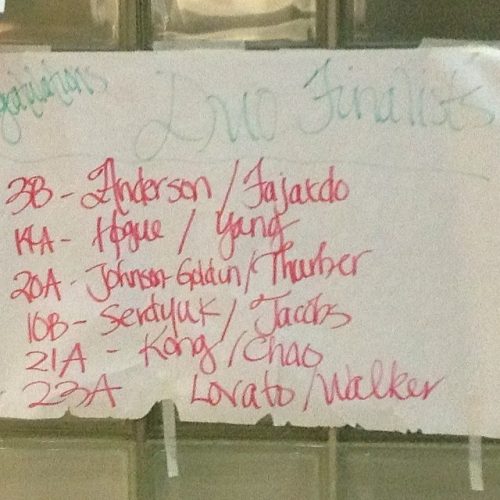 Duo Finalists
3B - Anderson / Fajardo
14A - Hogue / Yang
20A - Johnson-Goldun / Thurber
10B - Serdyuk / Jacobs
21A - Kong / Chao
- 23A Lovato / Walker